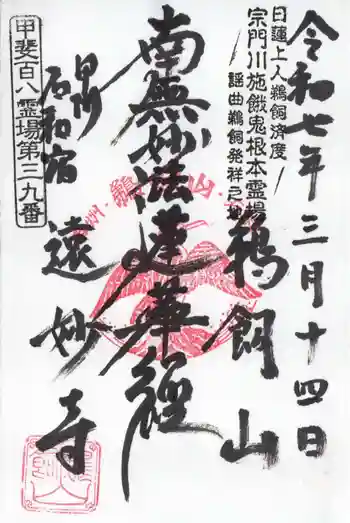 令和七年三月十四日
日蓮上人鵜飼済度
宗門川施餓鬼根本霊場
謡曲鵜飼発祥之地
鵜飼山
南無妙法蓮華経
甲州
石和宿
遠妙寺
甲斐百八霊場第三九番